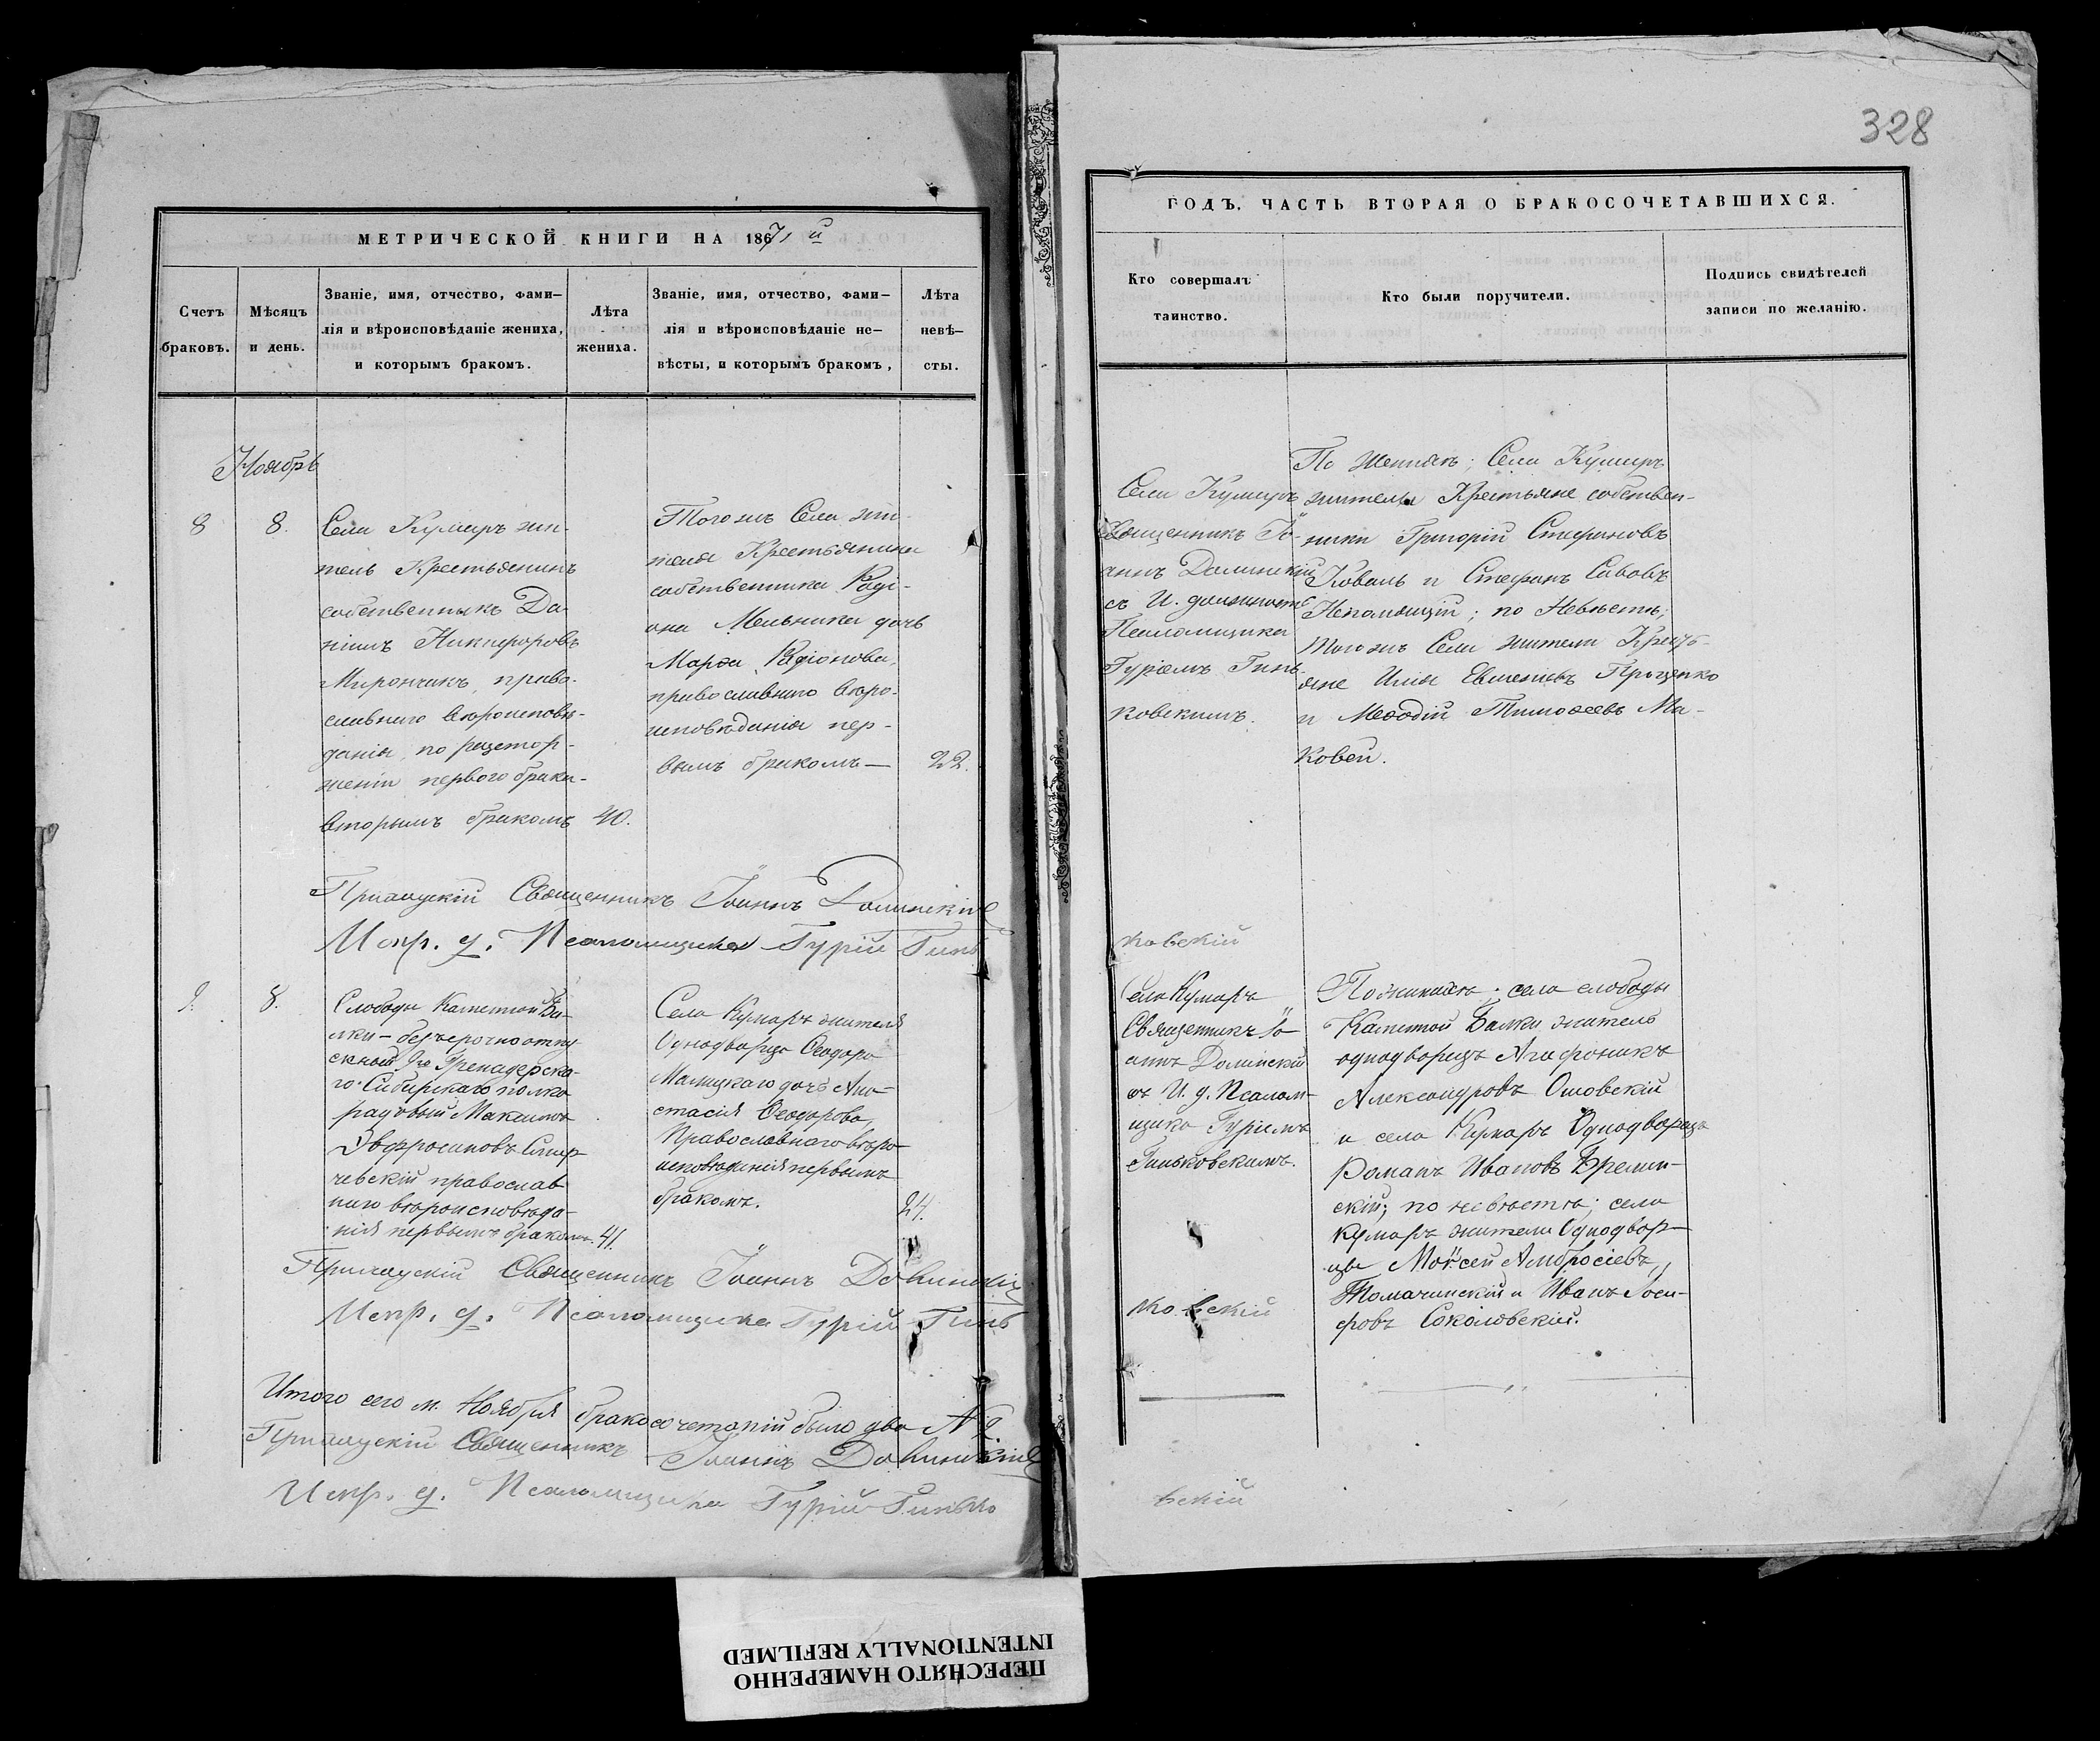 328
МЕТРИЧЕСКОЙ КНИГИ НА 1871 й
Счетъ
браковъ.
Мѣсяцъ
и день.
Званіе, имя, отчество, фами-
лія и вѣроисповѣданіе жениха,
и которымъ бракомъ.
Лѣта
жениха.
Званіе, имя, отчество, фами-
лія и вѣроисповѣданіе не-
вѣсты, и которымъ бракомъ,
Лѣта
невѣ-
сты.
Ноябрь
8
8.
Села Кумаръ жи-
тель Крестьянинъ
собственникъ Да-
ніилъ Никифоровъ
Мирончикъ, право-
славнаго вѣроисповѣ-
данія, по расторг-
женіи первого брака-
вторымъ бракомъ
40.
Того жъ Села жи-
теля Крестьянина
собственника Роді-
она Мельника дочь
Марѳа Родіонова,
православнаго вѣро-
исповѣданія пер-
вымъ бракомъ—
22.
Приходскій Священникъ Іоаннъ Долинскій
Испр. д. Псаломщика Гурій Гинь
9.
8.
Слободы Каменной Ба-
лки — безсрочноотпу
скной 9го Гренадерска-
го Сибирскаго полка
рядовый Максимъ
Эвфросиновъ
чевскій православ
наго вѣроисповѣда-
нія первымъ бракомъ.
41.
Села Кумаръ жителя
Однодворца Ѳеодора
дочь Ана-
стасія Ѳеодорова,
Православнаго вѣро-
исповѣданія первымъ
бракомъ.
24.
Приходскій Священникъ Іоаннъ Долинскій
Испр. д. Псаломщика Гурій Гинь
Итого сего м. Ноября бракосочетаній было два № 2.
Приходскій Священникъ Іоаннъ Долинскій
Испр. д. Псаломщика Гурій Гинько
ГОДЪ. ЧАСТЬ ВТОРАЯ О БРАКОСОЧЕТАВШИХСЯ.
Кто совершалъ
таинство.
Кто были поручители.
Подпись свидѣтелей
записи по желанію.
Села Кумаръ
Священникъ Іо-
аннъ Долинскій
съ И. должность
Псаломщика
Гуріемъ Гинь-
ковскимъ.
По Женихѣ; Села Кумаръ
жители Крестьяне собствен-
ники Григорій Стефановъ
Коваль и Стефанъ Савовъ
Непомнящій; по Невѣстѣ;
того жъ Села жители Кресть-
яне Илья Евменіевъ Проценко
и Меѳодій Тимоѳеевъ Ма-
ковей.
ковскій
Села Кумаръ
Священникъ Іо-
аннъ Долинскій
съ И. д. Псалом-
щика Гуріемъ
Гиньковскимъ.
По женихѣ; села слободы
Каменной Балки житель
однодворецъ Агафоникъ
Александровъ Оловскій
и села Кумаръ Однодворецъ
Романъ Ивановъ
скій; по невѣстѣ; села
Кумаръ жители Однодвор-
цы Моѵсей Амбросіевъ,
Томачинскій и Иванъ Іоси-
фовъ Соколовскій.
ковскій
вскій
ПЕРЕСНЯТО НАМЕРЕННО
INTENTIONALLY REFILMED